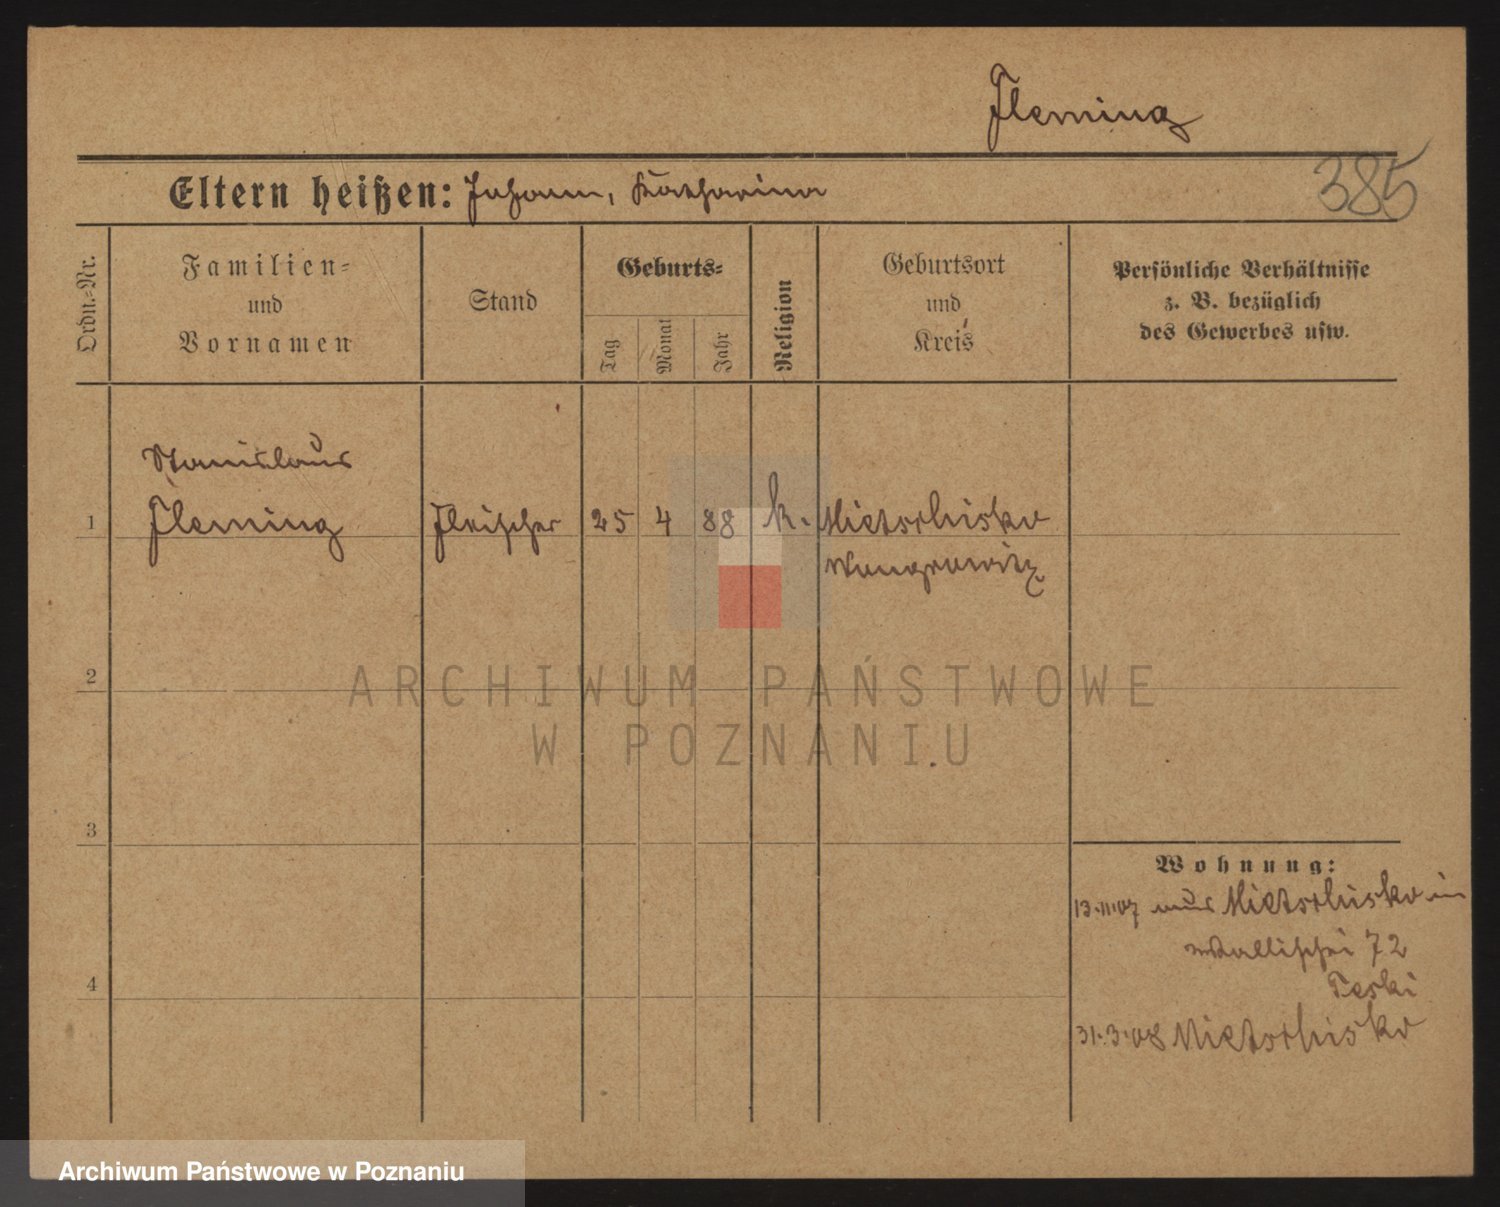 Fleming
385
Eltern heißen: Johann, Katharina
Ordn.-Nr.
Familien-
und
Vornamen
Stand
Geburts-
Tag
Monat
Jahr
Religion
Geburtsort
und
Kreis
Persönliche Verhältnisse
z. B. bezüglich
des Gewerbes usw.
Stanislaus
1 Fleming Fleischer 25 4 88 k. Mietschisko
Wongrowitz
ARCHIWUM PAŃSTWOWE
W POZNANIU
2
3
4
Wohnung:
13.11.07 aus Mietschisko in
Wallischei 72
Teski
31.3.08 Mietschisko
Archiwum Państwowe w Poznaniu